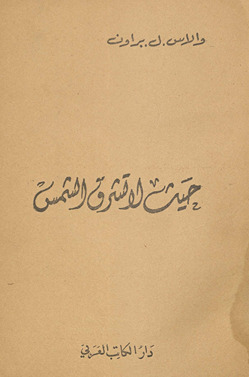 والاس . ل . براون
حيث لا تشرق الشمس
دار الكاتب العربي